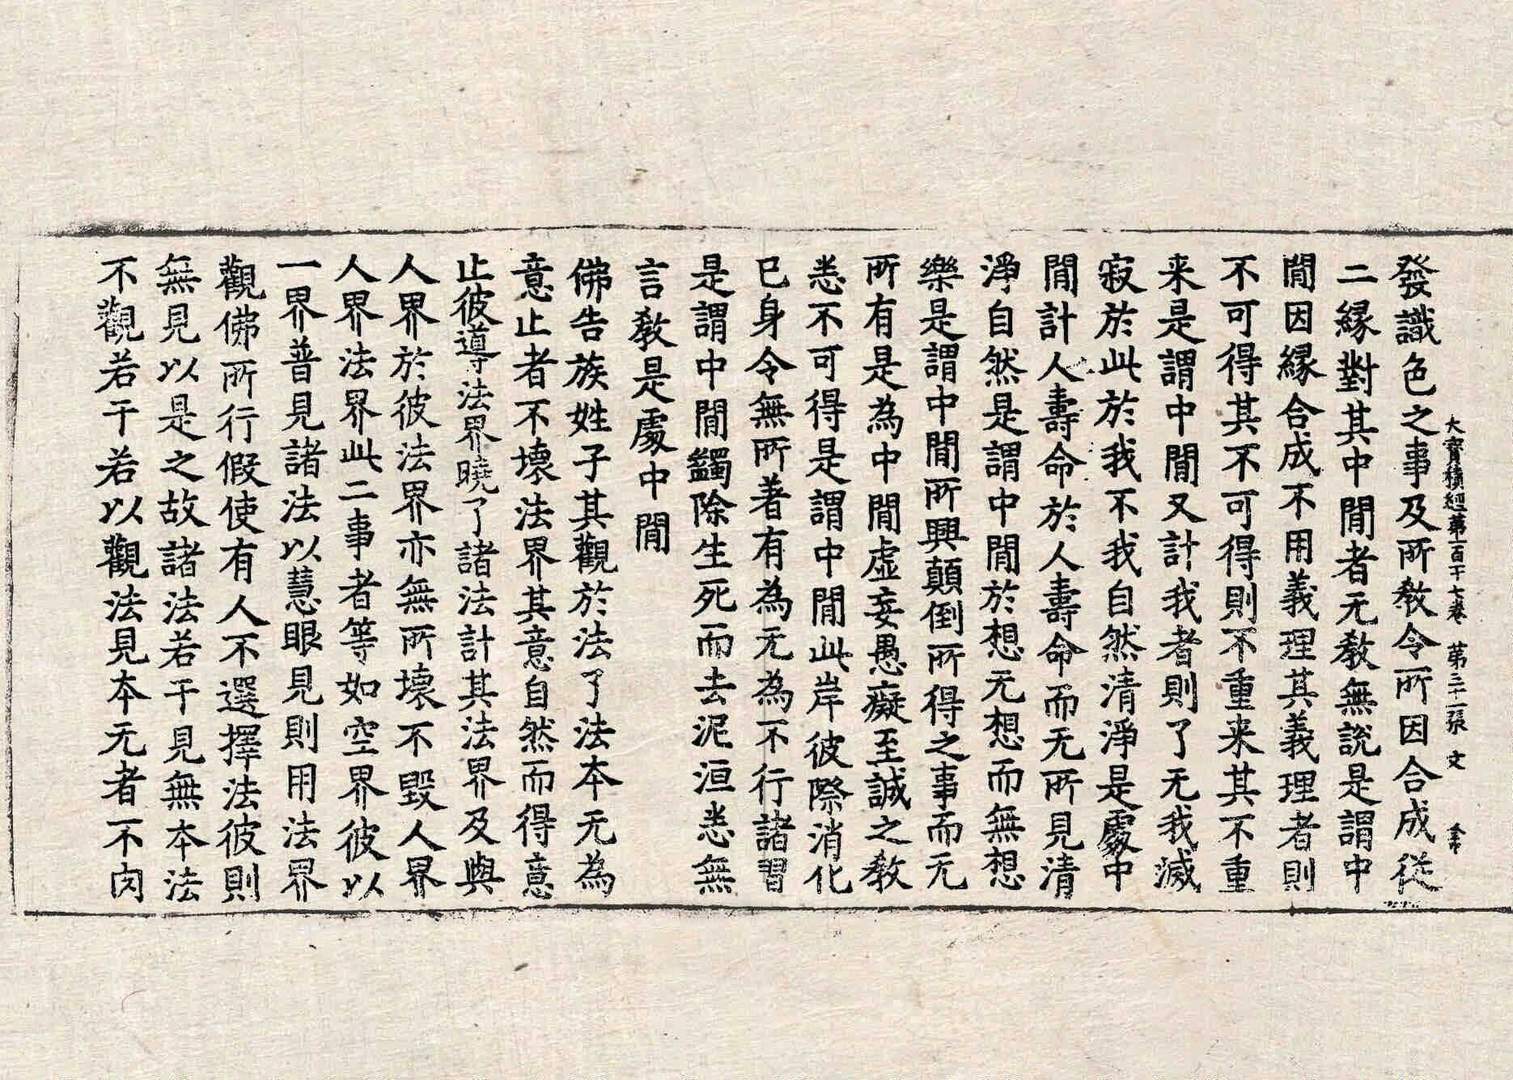 大寶積經第一百十七卷 第三十二張 文
發識色之事及所教令所因合成從
二緣對其中間者无教無說是謂中
間因緣合成不用義理其義理者則
不可得其不可得則不重来其不重
来是謂中間又計我者則了无我滅
寂於此於我不我自然清淨是處中
間計人壽命於人壽命而无所見清
淨自然是謂中間於想无想而無想
樂是謂中間所興顛倒所得之事而无
所有是為中間虛妄愚癡至誠之教
悉不可得是謂中間此岸彼際消化
已身令無所著有為无為不行諸習
是謂中間蠲除生死而去泥洹悉無
言教是處中間
佛告族姓子其觀於法了法本无為
意止者不壞法界其意自然而得意
止彼導法界曉了諸法計其法界及與
人界於彼法界亦無所壞不毀人界
人界法界此二事者等如空界彼以
一界普見諸法以慧眼見則用法界
觀佛所行假使有人不選擇法彼則
無見以是之故諸法若干見無本法
不觀若干若以觀法見本无者不肉